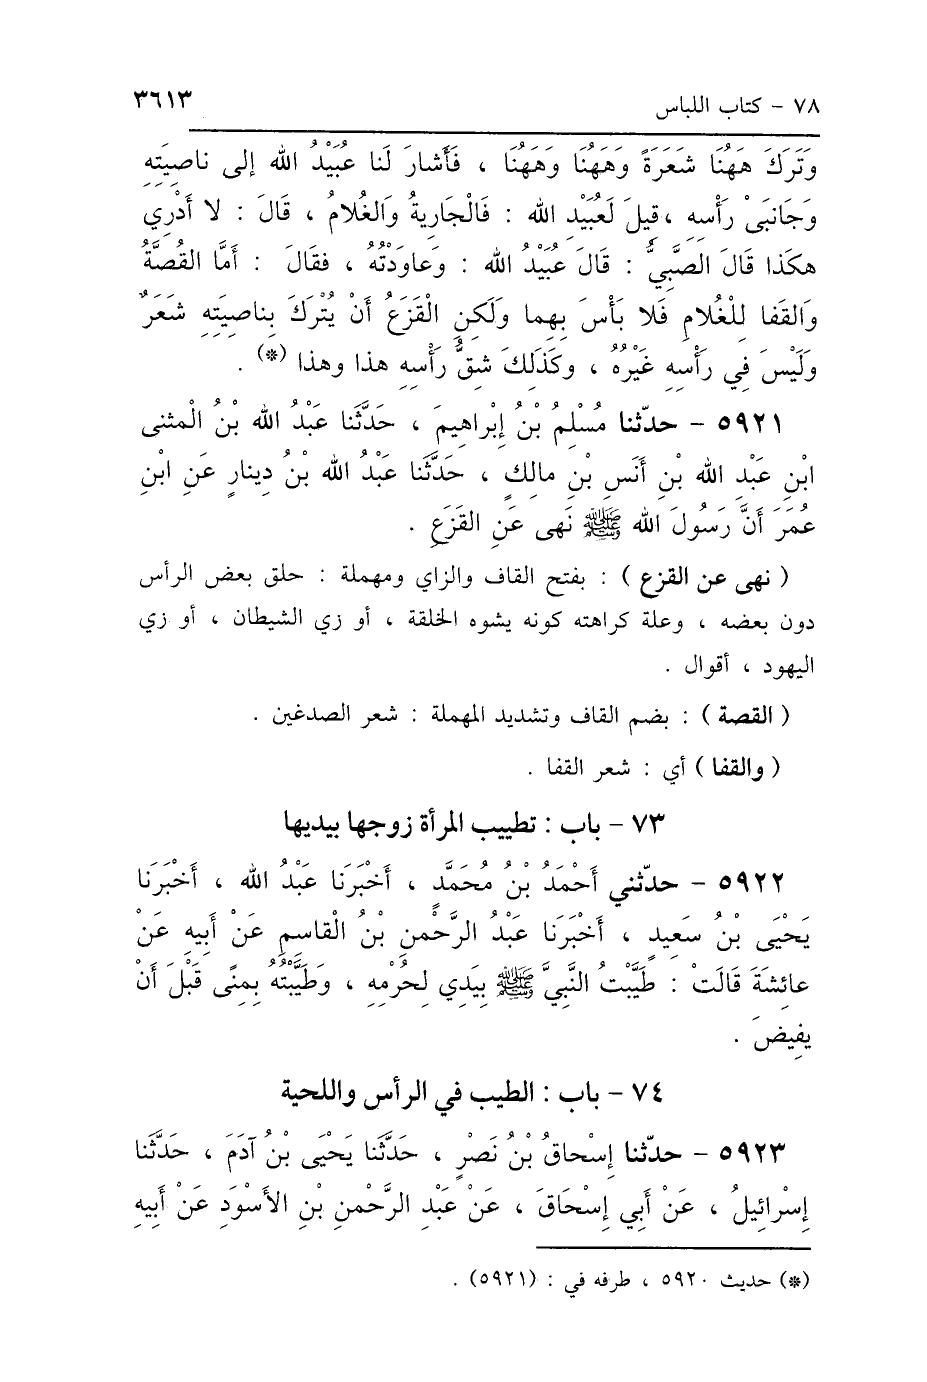 ٧٨ - كتاب اللباس ٣٦١٣
وَتَرَكَ هَهُنَا شَعَرَةً وَهَهُنَا وَهَهُنَا ، فَأَشارَ لَنا عُبَيْدُ الله إلى ناصِيَتِهِ
وَجَانِبَيْ رَأْسِهِ ،قِيلَ لِعُبَيْدِ الله : فَالْجَارِيةُ وَالغُلامُ ، قَالَ : لا أَدْرِي
هكَذا قَالَ الصَّبِيُّ : قَالَ عُبَيْدُ الله : وَعاوَدْتُهُ ، فقَالَ : أَمَّا القُصَّةُ
وَالقَفا لِلْغُلامِ فَلا بَأْسَ بِهِما وَلَكِنِ الْقَزَعُ أَنْ يُتْرَكَ بِناصِيَتِهِ شَعَرٌ
وَلَيْسَ فِي رَأْسِهِ غَيْرُهُ ، وكَذَلِكَ شِقُّ رَأْسِهِ هذا وهذا (*) .
٥٩٢١ - حدّثنا مُسْلِمُ بْنُ إِبْراهِيمَ ، حَدَّثَنا عَبْدُ الله بْنُ الْمثنى
ابْنِ عَبْدِ الله بْنِ أَنَسِ بْنِ مالِكٍ ، حَدَّثَنَا عَبْدُ الله بْنُ دِينارٍ عَنِ ابْنِ
عُمَرَ أَنَّ رَسُولَ الله ﷺ نَهى عَنِ القَزَعِ .
( نهى عن القزع ) : بفتح القاف والزاي ومهملة : حلق بعض الرأس
دون بعضه ، وعلة كراهته كونه يشوه الخلقة ، أو زي الشيطان ، أو زي
اليهود ، أقوال .
( القصة ) : بضم القاف وتشديد المهملة : شعر الصدغين .
( والقفا ) أي : شعر القفا .
٧٣ - باب : تطييب المرأة زوجها بيديها
٥٩٢٢ - حدّثني أَحْمَدُ بْنُ مُحَمَّدٍ ، أَخْبَرَنا عَبْدُ الله ، أَخْبَرَنا
يَحْيَى بْنُ سَعِيدٍ ، أَخْبَرَنَا عَبْدُ الرَّحْمنِ بْنُ القَاسِمِ عَنْ أَبِيهِ عَنْ
عائِشَةَ قَالَتْ : طَيَّبْتُ النَّبِيَّ ﷺ بِيَدِي لِحُرْمِهِ ، وَطَيَّبْتُهُ بِمِنًى قَبْلَ أَنْ
يفِيضَ .
٧٤ - باب : الطيب في الرأس واللحية
٥٩٢٣ - حدّثنا إِسْحاقُ بْنُ نَصْرٍ ، حَدَّثَنا يَحْيَى بْنُ آدَمَ ، حَدَّثَنا
إِسْرائِيلُ ، عَنْ أَبِي إِسْحَاقَ ، عَنْ عَبْدِ الرَّحْمنِ بْنِ الأَسْوَدِ عَنْ أَبِيهِ
(*) حديث ٥٩٢٠ ، طرفه في : (٥٩٢١) .